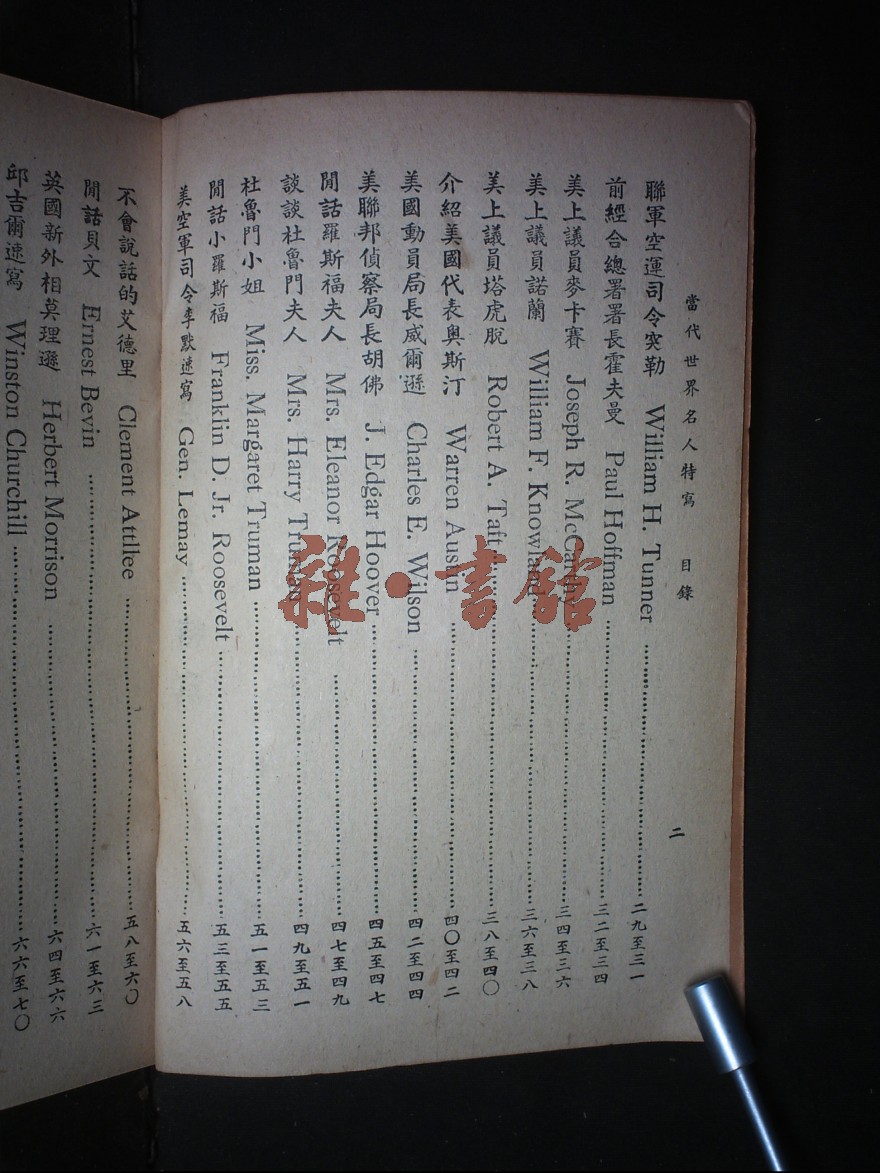 當代世界名人特寫 目錄 二
聯軍空運司令突勒 William H. Tunner 二九至三一
前經合總署署長霍夫曼 Paul Hoffman 三二至三四
美上議員麥卡賽 Joseph R. McCarthy 三四至三六
美上議員諾蘭 William F. Knowland 三六至三八
美上議員塔虎脫 Robert A. Taft 三八至四〇
介紹美國代表奧斯汀 Warren Austin 四〇至四二
美國動員局長威爾遜 Charles E. Wilson 四二至四四
美聯邦偵察局長胡佛 J. Edgar Hoover 四五至四七
閒話羅斯福夫人 Mrs. Eleanor Roosevelt 四七至四九
談談杜魯門夫人 Mrs. Harry Truman 四九至五一
杜魯門小姐 Miss. Margaret Truman 五一至五三
閒話小羅斯福 Franklin D. Jr. Roosevelt 五三至五五
美空軍司令李默速寫 Gen. Lemay 五六至五八
不會說話的艾德里 Clement Attllee 五八至六〇
閒話貝文 Ernest Bevin 六一至六三
英國新外相莫理遜 Herbert Morrison 六四至六六
邱吉爾速寫 Winston Churchill 六六至七〇
雜·書館